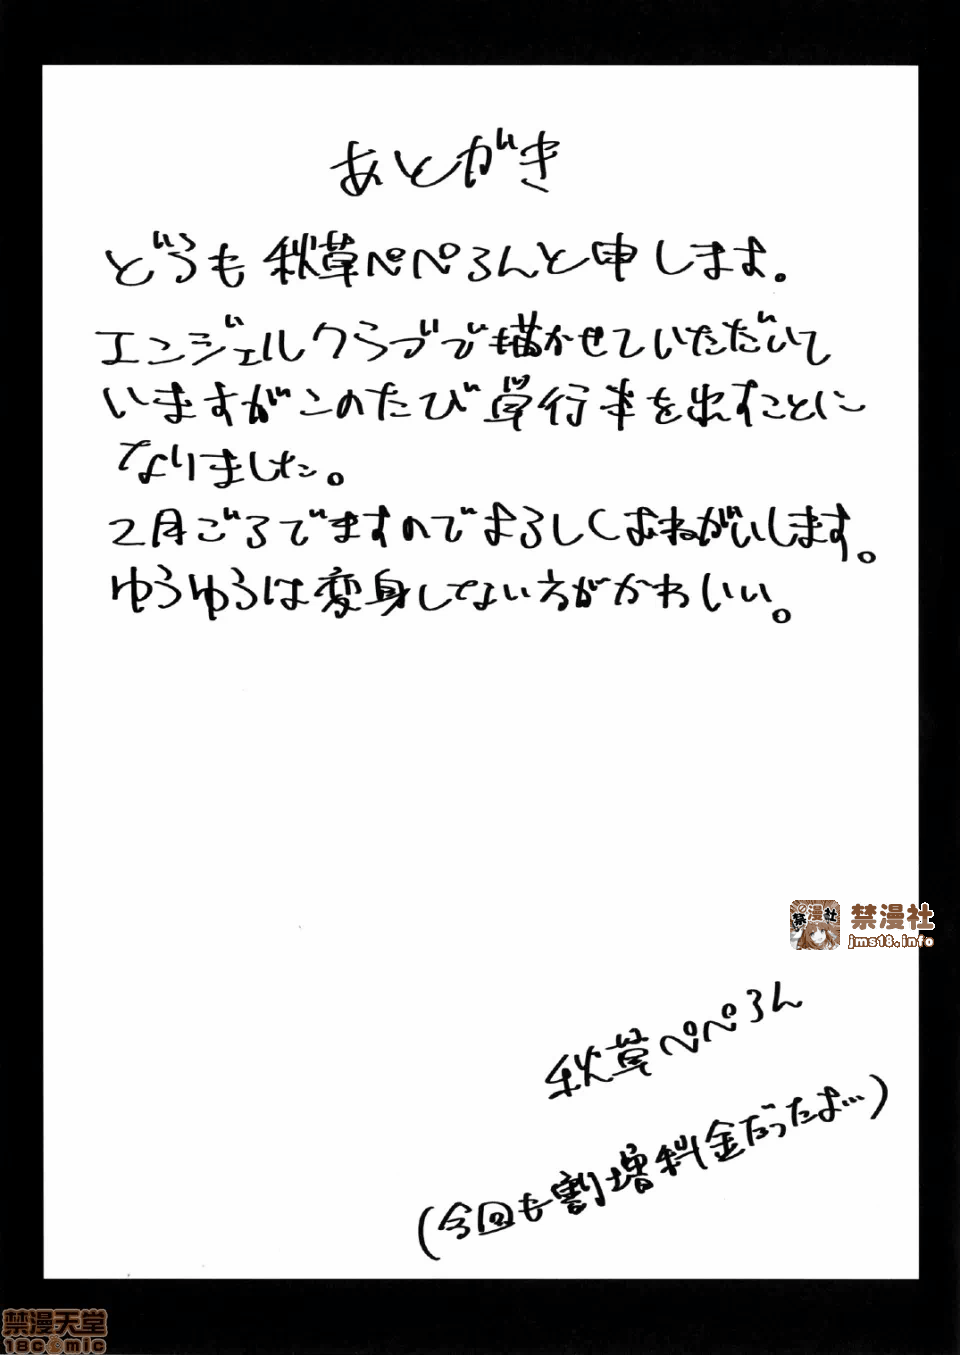 あとがき
どうも秋草ぺぺろんと申します。
エンジェルクラブで描かせていただいて
いますがこのたび単行本を出すことに
なりました。
2月ごろですのでよろしくおねがいします。
ゆうゆうは変身してない方がかわいい。
禁漫社
jms18.info
秋草ぺぺろん
(今回も割増料金だったよ…)
禁漫天堂
18comic